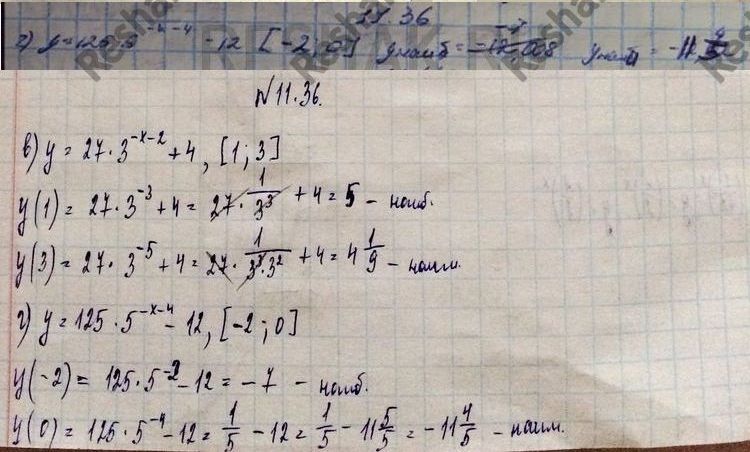 11 36
г) y = 125·5^{-x-4} - 12 [-2; 0] yнаиб = -7 yнаим = -11 4/5
№11.36.
в) y = 27·3^{-x-2} + 4, [1; 3]
y(1) = 27·3^{-3} + 4 = 27·1/3^3 + 4 = 5 - наиб.
y(3) = 27·3^{-5} + 4 = 27·1/(3^3·3^2) + 4 = 4 1/9 - наим.
г) y = 125·5^{-x-4} - 12, [-2; 0]
y(-2) = 125·5^{-2} - 12 = -7 - наиб.
y(0) = 125·5^{-4} - 12 = 1/5 - 12 = 1/5 - 11 5/5 = -11 4/5 - наим.